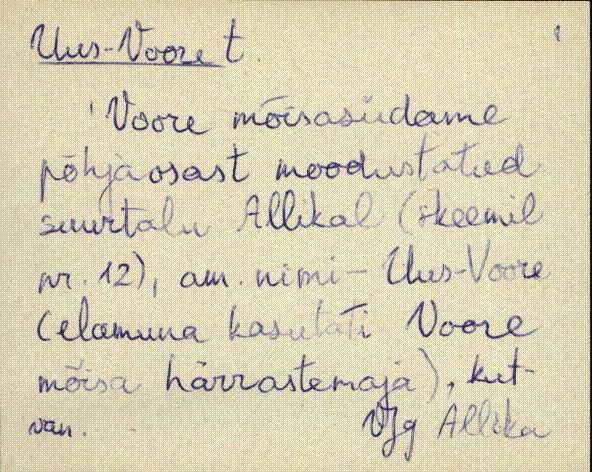 Uus-Voore t.
Voore mõisasüdame
põhjaosast moodustatud
suurtalu Allikal (skeemil
nr. 12), am. nimi - Uus-Voore
(elamuna kasutati Voore
mõisa härrastemaja), kut-
van.
Vjg Allika